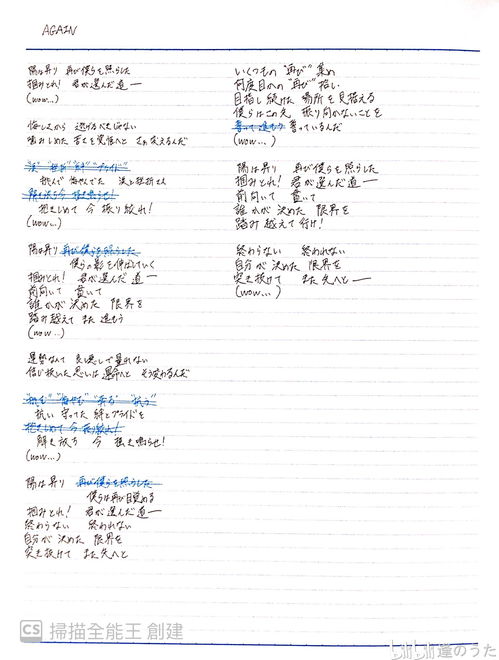 AGAIN
陽は昇り 再び僕らを照らした
掴みとれ! 君が選んだ道ー
(wow...)
悔しさから 逃げるべきじゃない
噛みしめた 苦さを覚悟へと
挑んで 悔やんでた 涙と
抱きしめて 今 振り絞れ!
(wow...)
陽は昇り 再び僕らを照らした
僕らの影を伸ばしていく
掴みとれ! 君が選んだ 道ー
前向いて 貫いて
誰かが決めた 限界を
踏み越えて また 進もう
(wow...)
運勢なんて 良し悪しで量れない
信じ抜いた思いは 運命へと そう変わるんだ
抗い 守ってた 絆とプライドを
抱きしめて 今 振り絞れ!
解き放ち 今 掻き鳴らせ!
(wow...)
陽は昇り 再び僕らを照らした
僕らは再び目覚める
掴みとれ! 君が選んだ 道ー
終わらない 終われない
自分が決めた 限界を
突き抜けて また先へと
いくつもの "再び" 集め
何度目かの "再び" 指し
目指し続けた 場所を見据える
僕らはこの先 振り向かないことを
誓っているんだ
(wow...)
陽は昇り 再び僕らを照らした
掴みとれ! 君が選んだ道ー
前向いて 貫いて
誰かが決めた 限界を
踏み越えて行け!
終わらない 終われない
自分が決めた 限界を
突き抜けて また先へとー
(wow...)
CS 掃描全能王 創建
bilibili 達のうた